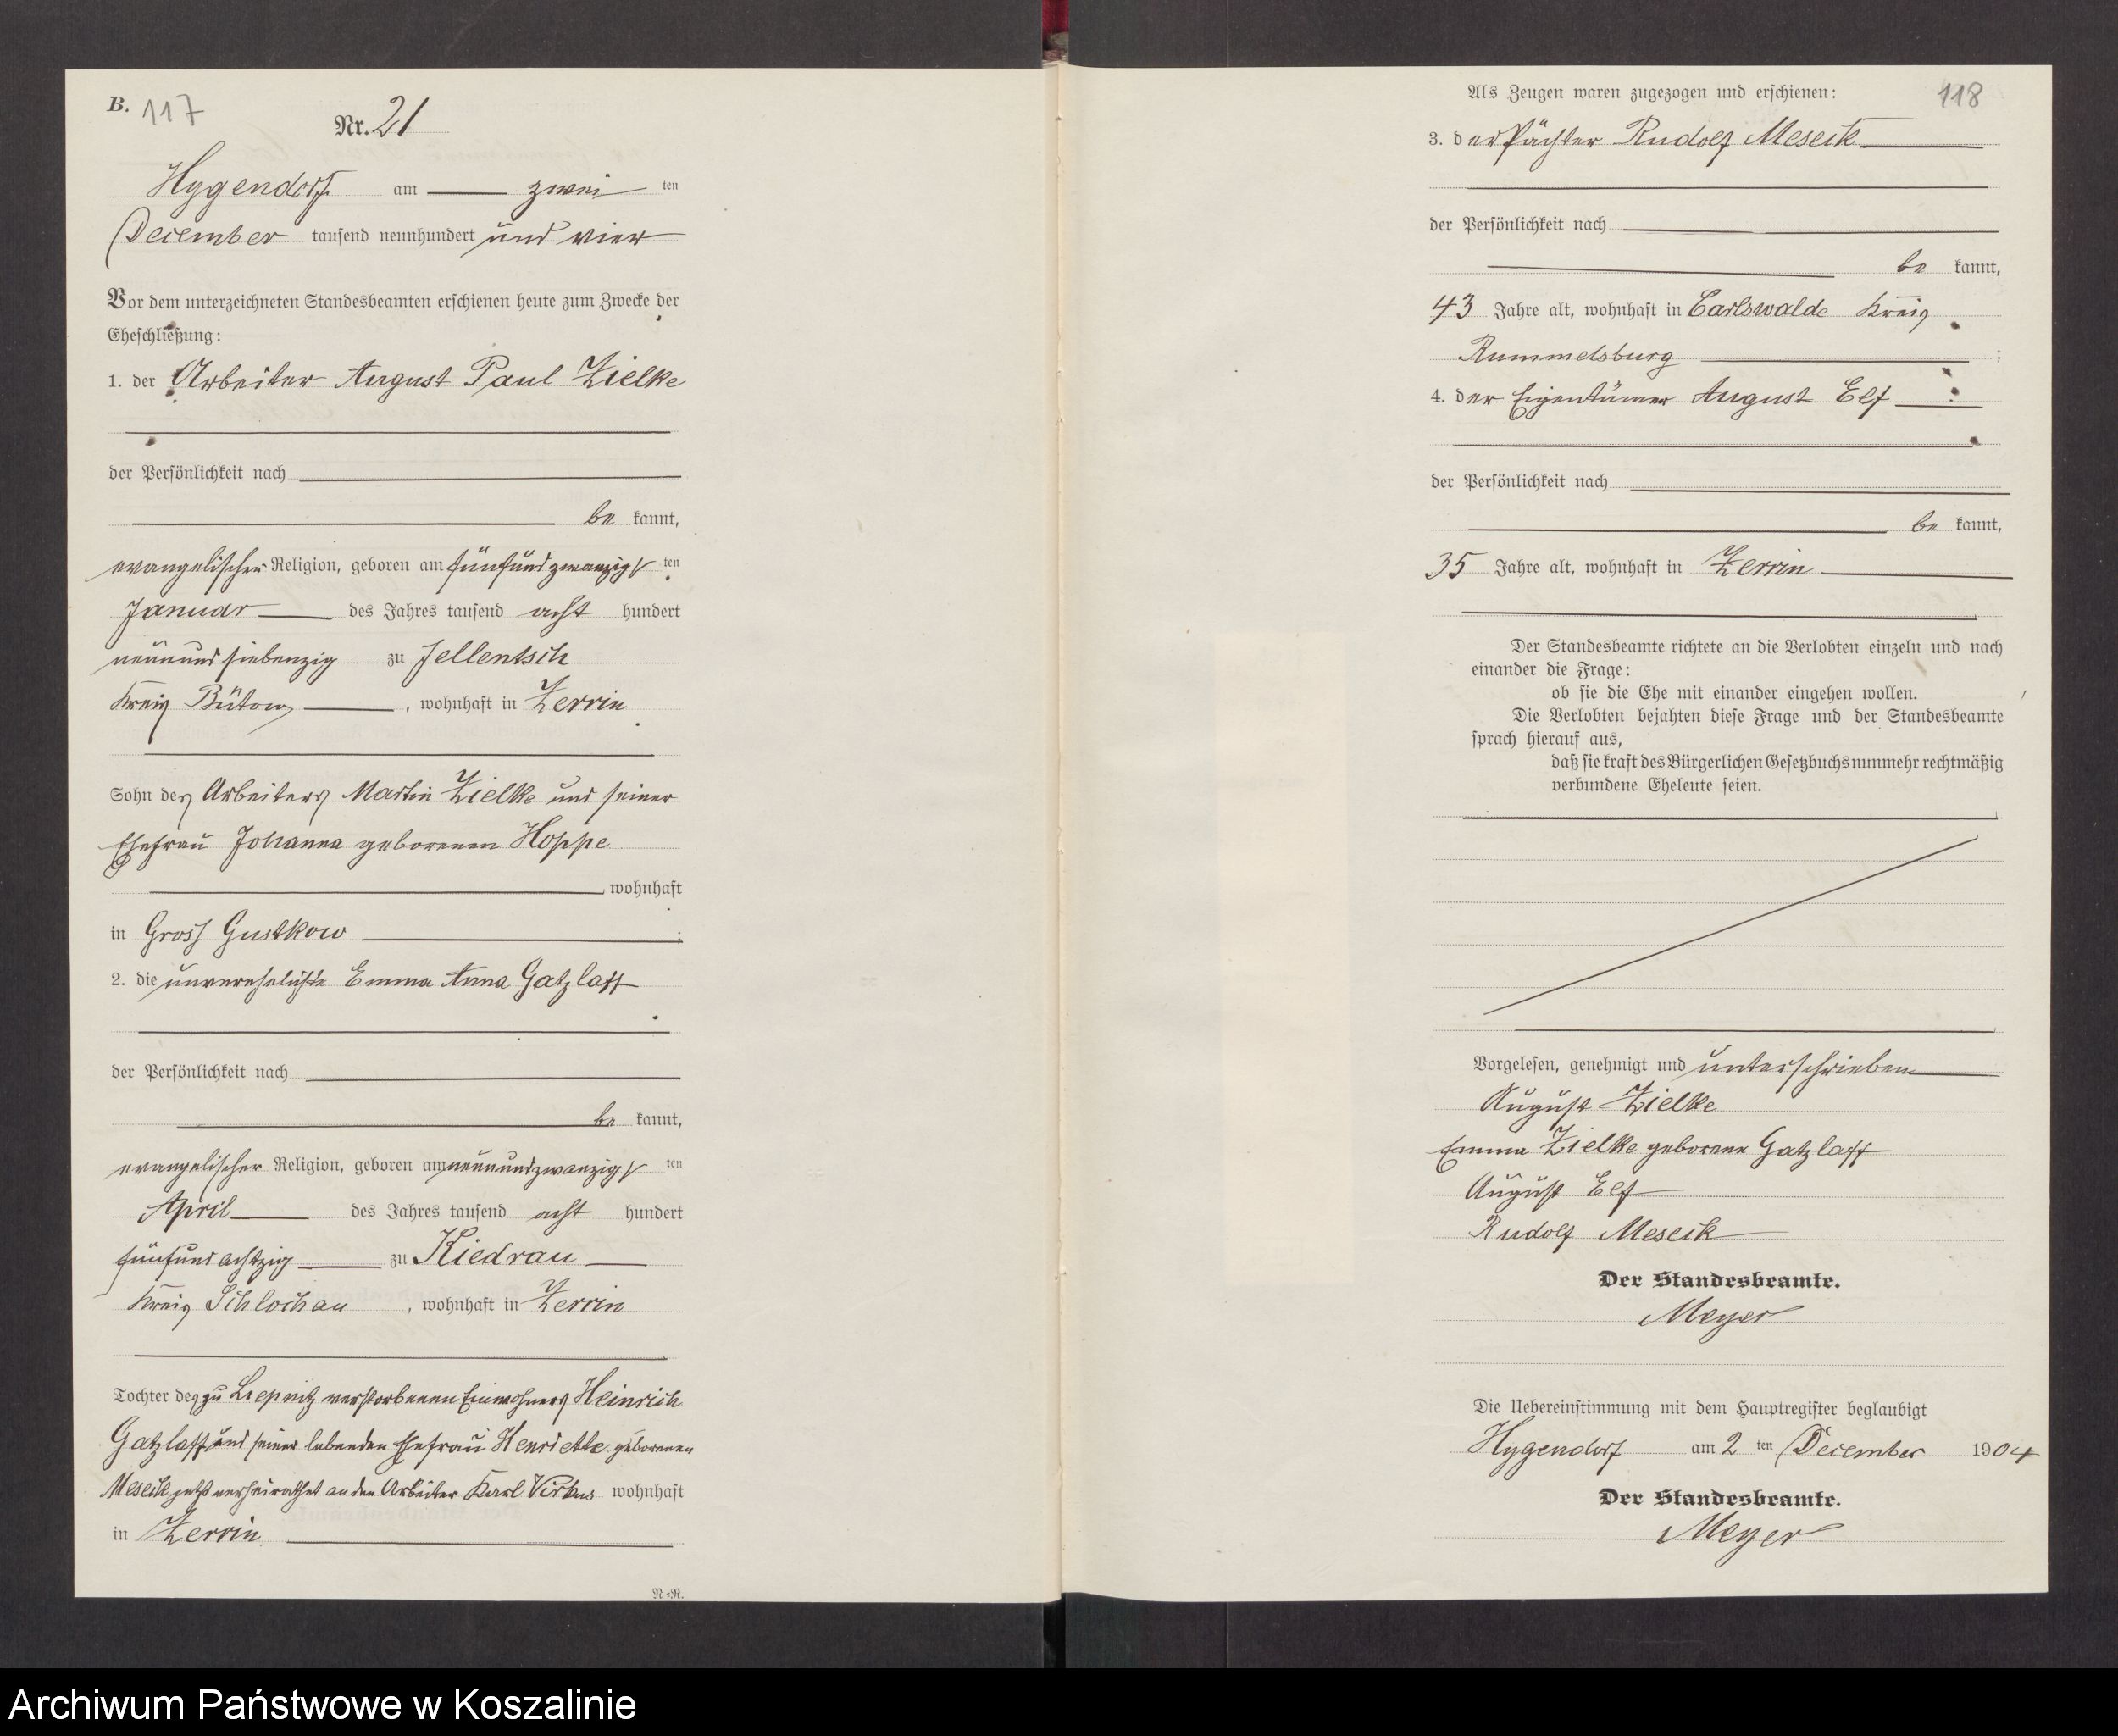 B. 117
Nr. 21
Hygendorf am zwei ten
December tausend neunhundert und vier
Vor dem unterzeichneten Standesbeamten erschienen heute zum Zwecke der
Eheschließung:
1. der Arbeiter August Paul Zielke
der Persönlichkeit nach
be kannt,
evangelischer Religion, geboren am fünfundzwanzigs ten
Januar des Jahres tausend acht hundert
neunundsiebenzig zu Jellentsch
Kreis Bütow, wohnhaft in Zerrin
Sohn des Arbeiters Martin Zielke und seiner
Ehefrau Johanna geborenen Hoppe
wohnhaft
in Gross Gustkow ;
2. die unverehelichte Emma Anna Gatzlaff
der Persönlichkeit nach
be kannt,
evangelischer Religion, geboren am neunundzwanzigs ten
April des Jahres tausend acht hundert
fünfundachtzig zu Kiedrau
Kreis Schlochau, wohnhaft in Zerrin
Tochter des zu Liepnitz verstorbenen Einwohners Heinrich
Gatzlaff und seiner lebenden Ehefrau Henriette geborenen
Meseck jetzt verheirathet an den Arbeiter Karl Virkus wohnhaft
in Zerrin
N-N.
Als Zeugen waren zugezogen und erschienen: 118
3. der Pächter Rudolf Meseck
der Persönlichkeit nach
be kannt,
43 Jahre alt, wohnhaft in Carlswalde Kreis
Rummelsburg ;
4. der Eigentümer August Elf
der Persönlichkeit nach
be kannt,
35 Jahre alt, wohnhaft in Zerrin
Der Standesbeamte richtete an die Verlobten einzeln und nach
einander die Frage:
ob sie die Ehe mit einander eingehen wollen.
Die Verlobten bejahten diese Frage und der Standesbeamte
sprach hierauf aus,
daß sie kraft des Bürgerlichen Gesetzbuchs nunmehr rechtmäßig
verbundene Eheleute seien.
Vorgelesen, genehmigt und unterschrieben
August Zielke
Emma Zielke geborene Gatzlaff
August Elf
Rudolf Meseck
Der Standesbeamte.
Meyer
Die Uebereinstimmung mit dem Hauptregister beglaubigt
Hygendorf am 2 ten December 1904
Der Standesbeamte.
Meyer
Archiwum Państwowe w Koszalinie